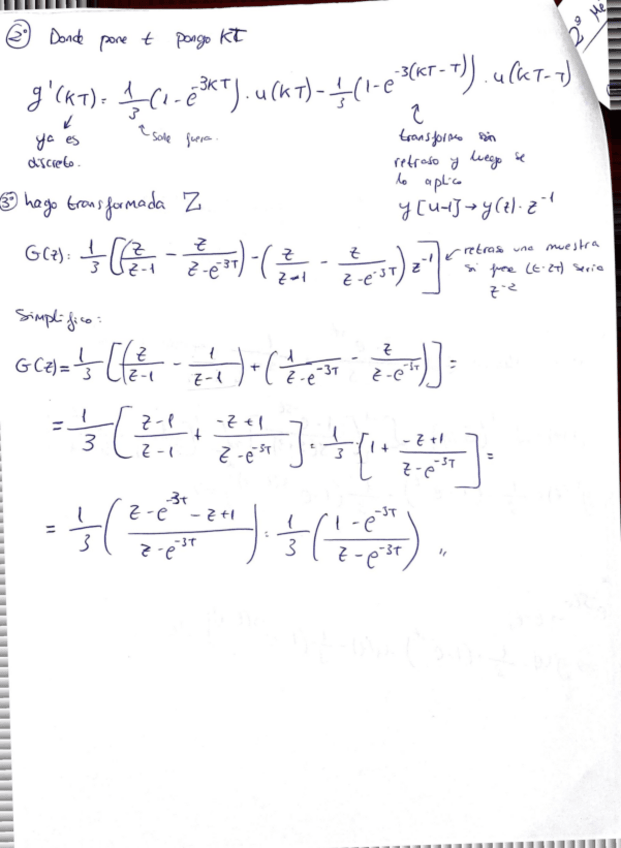 2º Me
②º Donde pone t pongo KT
g'(KT) = 1/3 (1 - e^-3KT) . u(KT) - 1/3 (1 - e^-3(KT-T)) . u(KT-T)
ya es discreto.
sale fuera.
transformo sin retraso y luego se lo aplico
y[u-1] → y(z) . z^-1
③º hago transformada Z
G(z): 1/3 [(z/(z-1) - z/(z-e^-3T)) - (z/(z-1) - z/(z-e^-3T)) z^-1]
↙ retraso una muestra si fuese (t-2T) seria z^-2
Simplifico:
G(z) = 1/3 [(z/(z-1) - 1/(z-1)) + (1/(z-e^-3T) - z/(z-e^-3T))] =
= 1/3 [(z-1)/(z-1) + (-z+1)/(z-e^-3T)] = 1/3 [1 + (-z+1)/(z-e^-3T)] =
= 1/3 ((z-e^-3T -z+1)/(z-e^-3T)) = 1/3 ((1-e^-3T)/(z-e^-3T)) ,,